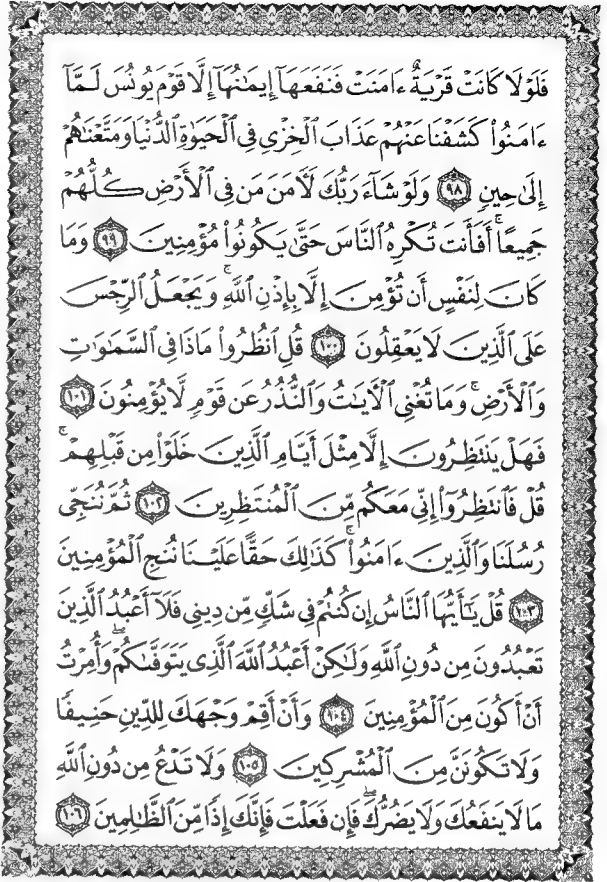 فَلَوْلَا كَانَتْ قَرْيَةٌ ءَامَنَتْ فَنَفَعَهَآ إِيمَٰنُهَآ إِلَّا قَوْمَ يُونُسَ لَمَّآ
ءَامَنُوا۟ كَشَفْنَا عَنْهُمْ عَذَابَ ٱلْخِزْىِ فِى ٱلْحَيَوٰةِ ٱلدُّنْيَا وَمَتَّعْنَٰهُمْ
إِلَىٰ حِينٍ ٩٨ وَلَوْ شَآءَ رَبُّكَ لَءَامَنَ مَن فِى ٱلْأَرْضِ كُلُّهُمْ
جَمِيعًا ۚ أَفَأَنتَ تُكْرِهُ ٱلنَّاسَ حَتَّىٰ يَكُونُوا۟ مُؤْمِنِينَ ٩٩ وَمَا
كَانَ لِنَفْسٍ أَن تُؤْمِنَ إِلَّا بِإِذْنِ ٱللَّهِ ۚ وَيَجْعَلُ ٱلرِّجْسَ
عَلَى ٱلَّذِينَ لَا يَعْقِلُونَ ١٠٠ قُلِ ٱنظُرُوا۟ مَاذَا فِى ٱلسَّمَٰوَٰتِ
وَٱلْأَرْضِ ۚ وَمَا تُغْنِى ٱلْءَايَٰتُ وَٱلنُّذُرُ عَن قَوْمٍ لَّا يُؤْمِنُونَ ١٠١
فَهَلْ يَنتَظِرُونَ إِلَّا مِثْلَ أَيَّامِ ٱلَّذِينَ خَلَوْا۟ مِن قَبْلِهِمْ ۚ
قُلْ فَٱنتَظِرُوٓا۟ إِنِّى مَعَكُم مِّنَ ٱلْمُنتَظِرِينَ ١٠٢ ثُمَّ نُنَجِّى
رُسُلَنَا وَٱلَّذِينَ ءَامَنُوا۟ كَذَٰلِكَ حَقًّا عَلَيْنَا نُنجِ ٱلْمُؤْمِنِينَ
١٠٣ قُلْ يَٰٓأَيُّهَا ٱلنَّاسُ إِن كُنتُمْ فِى شَكٍّ مِّن دِينِى فَلَآ أَعْبُدُ ٱلَّذِينَ
تَعْبُدُونَ مِن دُونِ ٱللَّهِ وَلَٰكِنْ أَعْبُدُ ٱللَّهَ ٱلَّذِى يَتَوَفَّىٰكُمْ ۖ وَأُمِرْتُ
أَنْ أَكُونَ مِنَ ٱلْمُؤْمِنِينَ ١٠٤ وَأَنْ أَقِمْ وَجْهَكَ لِلدِّينِ حَنِيفًا
وَلَا تَكُونَنَّ مِنَ ٱلْمُشْرِكِينَ ١٠٥ وَلَا تَدْعُ مِن دُونِ ٱللَّهِ
مَا لَا يَنفَعُكَ وَلَا يَضُرُّكَ ۖ فَإِن فَعَلْتَ فَإِنَّكَ إِذًا مِّنَ ٱلظَّٰلِمِينَ ١٠٦